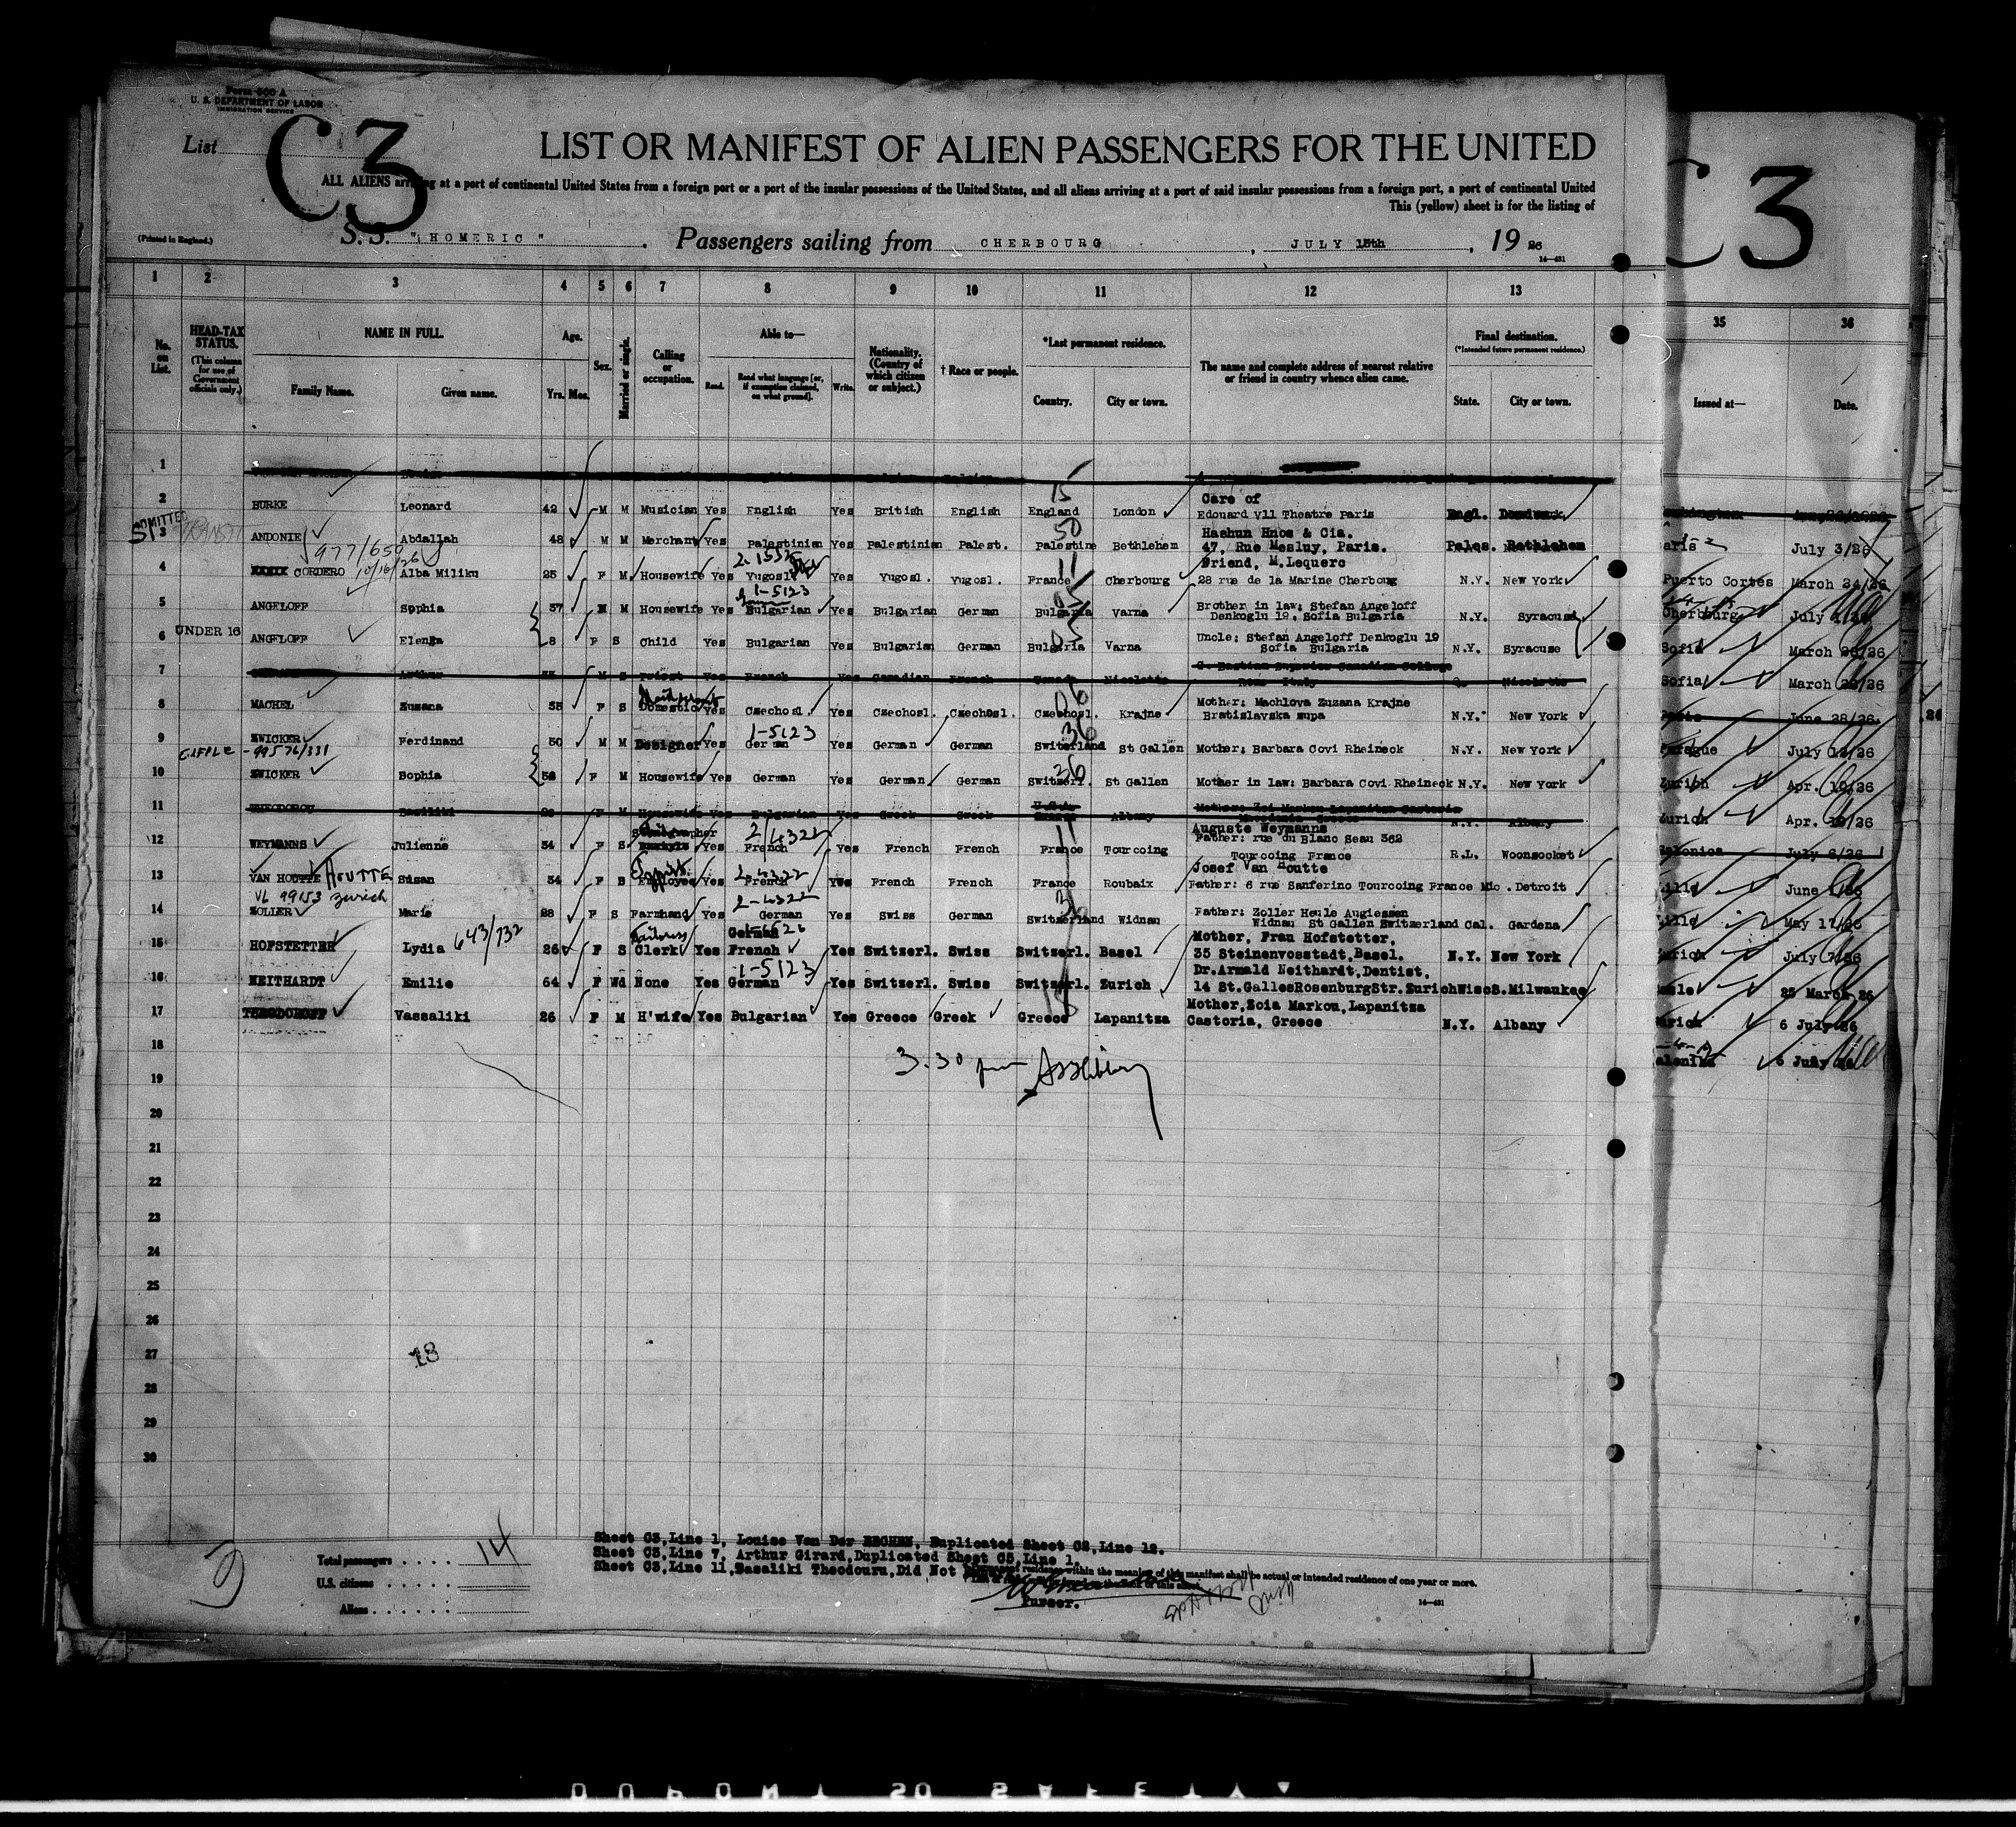 Form 500 A
U. S. DEPARTMENT OF LABOR
IMMIGRATION SERVICE
List C3
LIST OR MANIFEST OF ALIEN PASSENGERS FOR THE UNITED
ALL ALIENS arriving at a port of continental United States from a foreign port or a port of the insular possessions of the United States, and all aliens arriving at a port of said insular possessions from a foreign port, a port of continental United
This (yellow) sheet is for the listing of
(Printed in England.)
S. S. "HOMERIC". Passengers sailing from CHERBOURG, JULY 15th, 19 26
14—431
C 3
1 2 3 4 5 6 7 8 9 10 11 12 13
35 36
No. on List.
HEAD-TAX STATUS. (This column for use of Government officials only.)
NAME IN FULL.
Family Name. Given name.
Age. Yrs. Mos.
Sex.
Married or single.
Calling or occupation.
Able to—
Read. Read what language [or, if exemption claimed, on what ground]. Write.
Nationality. (Country of which citizen or subject.)
† Race or people.
*Last permanent residence.
Country. City or town.
The name and complete address of nearest relative or friend in country whence alien came.
Final destination.
(*Intended future permanent residence.)
State. City or town.
Issued at— Date.
1
2 BURKE Leonard 42 M M Musician Yes English Yes British English England London Care of Edouard Vll Theatre Paris Engl.
15
ADMITTED
3 ANDONIE Abdallah 48 M M Merchant Yes Palestinian Yes Palestinian Palest. Palestine Bethlehem Hashun Hnos & Cia. 47, Rue Mesluy, Paris. Pales. Bethlehem
50
977/650 10/16/26
4 CORDERO Alba Miliku 25 F M Housewife Yes Yugosl. Yes Yugosl. Yugosl. France Cherbourg Friend, M.Lequerc 28 rue de la Marine Cherbourg N.Y. New York
11
1-5123
5 ANGELOFF Sophia 37 M Housewife Yes Bulgarian Yes Bulgarian German Bulgaria Varna Brother in law: Stefan Angeloff Denkoglu 19, Sofia Bulgaria N.Y. Syracuse
6 UNDER 16 ANGELOFF Elenka 8 F S Child Yes Bulgarian Yes Bulgarian German Bulgaria Varna Uncle: Stefan Angeloff Denkoglu 19 Sofia Bulgaria N.Y. Syracuse
7 Arthur 33 M S Priest Yes French Yes Canadian French Canada Nicolette
8 MACHEL Zuzana 35 F S Domestic Yes Czechosl. Yes Czechosl. Czechosl. Czechosl. Krajne Mother: Machlova Zuzana Krajne Bratislavska zupa N.Y. New York
06
1-5123
9 ZWICKER Ferdinand 50 M M Designer Yes German Yes German German Switzerland St Gallen Mother: Barbara Covi Rheineck N.Y. New York
36
99576/331
10 ZWICKER Sophia F M Housewife Yes German Yes German German Switzerl. St Gallen Mother in law: Barbara Covi Rheineck N.Y. New York
36
11 THEODOROU Basiliki F M Housewife Yes Bulgarian Yes Greek Greek Albany N.Y. Albany
2/4322
12 WEYMANNS Julienne 34 F S Yes French Yes French French France Tourcoing Auguste Weymanns Father: rue du Blanc Seau 362 Tourcoing France R.L. Woonsocket
11
2-4322
13 VAN HOUTTE HOUTTE Susan 34 F S Employee Yes French Yes French French France Roubaix Josef Van Houtte Father: 6 rue Sanferino Tourcoing France Mic. Detroit
VL 99153 Zurich
2-4322
14 ZOLLER Marie 28 F S Farmhand Yes German Yes Swiss German Switzerland Widnau Father: Zoller Heule Augiessen Widnau St Gallen Switzerland Cal. Gardena
15 HOFSTETTER Lydia 643/732 26 F S Clerk Yes German French Yes Switzerl. Swiss Switzerl. Basel Mother, Frau Hofstetter, 35 Steinenvosstadt,Basel. N.Y. New York
1-5123
16 NEITHARDT Emilie 64 F Wd None Yes German Yes Switzerl. Swiss Switzerl. Zurich Dr.Arnald Neithardt,Dentist, 14 St.GallesRosenburgStr.Zurich Wisc. Milwaukee
17 THEODOROFF Vassaliki 26 F M H'wife Yes Bulgarian Yes Greece Greek Greece Lapanitza Mother,Zoia Markou,Lapanitza Castoria, Greece N.Y. Albany
18
3.30 pm
19
20
21
22
23
24
25
26
27
18
28
29
30
July 3/26
Puerto Cortes March 24/26
Cherbourg July
Sofia March
Sofia March
June 28/26.
Prague July 12/26
Zurich Apr.
Zurich Apr.
July 6/26
Lille June
Lille May 17/26
Zurich July 7/26
Basle 25 March 26
Zurich 6 July 26
6 July
Total passengers . . . . . 14
U.S. citizens . . . . .
Aliens . . . . . .
Sheet C3,Line 1, Louise Van Der EECHEN, Duplicated Sheet C2,Line 12.
Sheet C3,Line 7, Arthur Girard,Duplicated Sheet C5,Line 1.
Sheet C3,Line 11,Basaliki Theodouru,Did Not
residence within the meaning of this manifest shall be actual or intended residence of one year or more.
Purser.
14—431